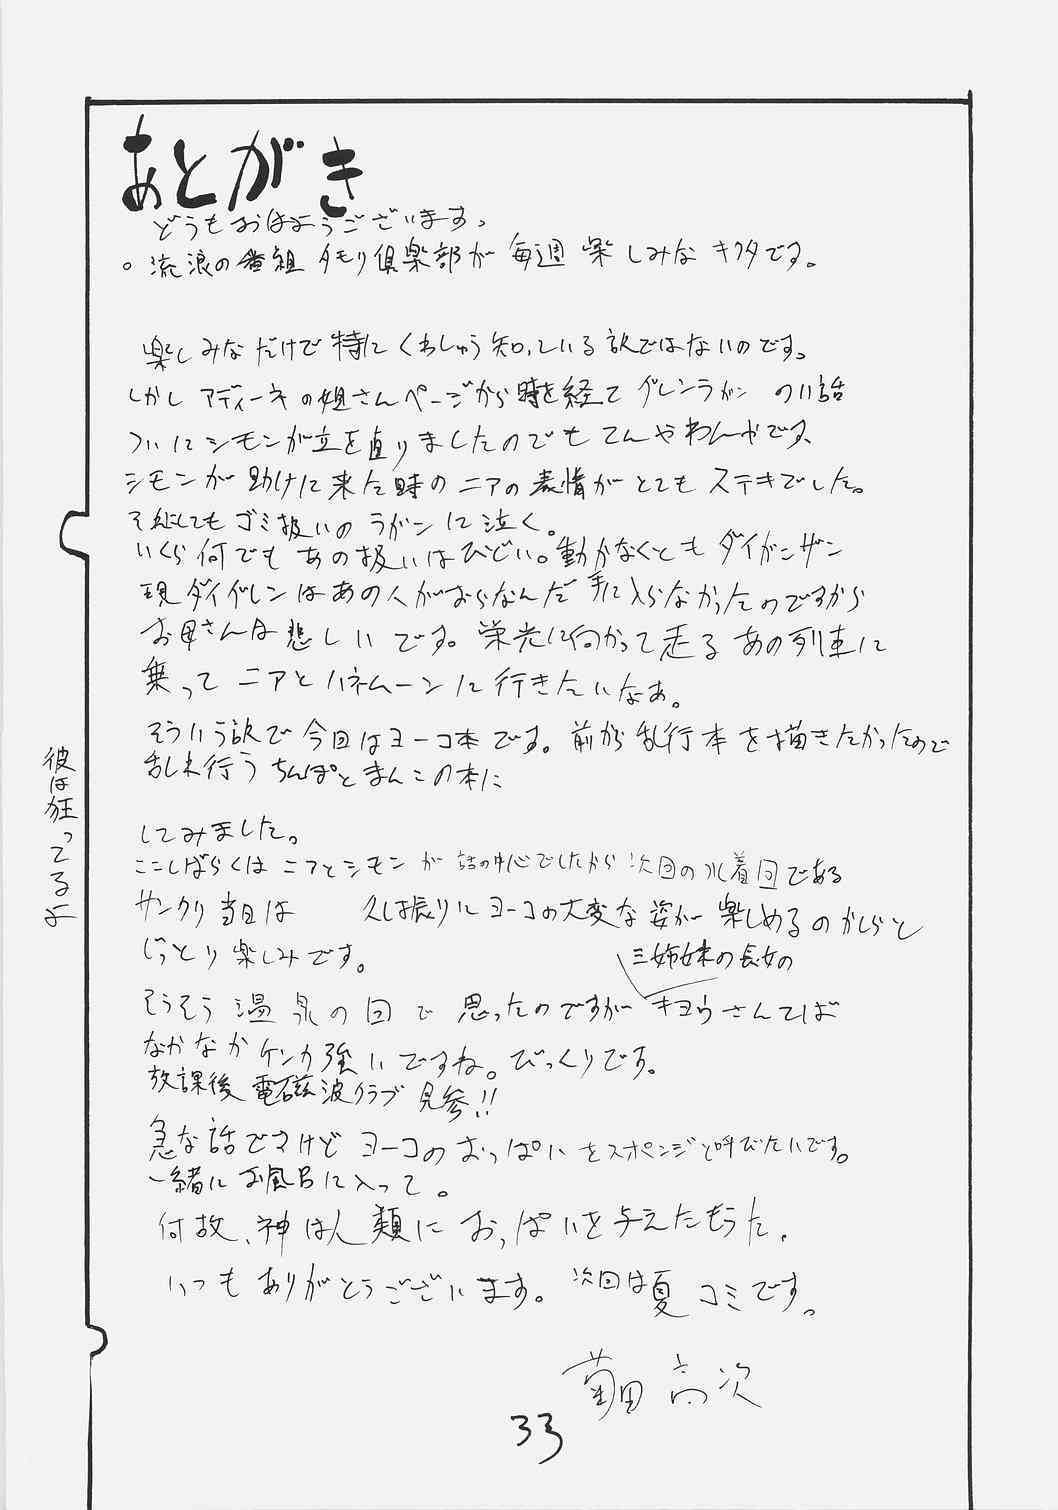 あとがき
どうもおはようございます。
。流浪の番組 タモリ倶楽部が 毎週 楽しみな キクタです。
楽しみなだけで特にくわしゅう知っている訳ではないのです。
しかし アディーネの姐さんページから時を経て グレンラガン の11話
ついにシモンが立ち直りましたのでもてんやわんやです、
シモンが助けに来た時のニアの表情がとてもステキでした。
それにしてもゴミ扱いのラガンに泣く。
いくら何でもあの扱いはひどい。動かなくともダイガンザン
現ダイグレンはあの人がおらなんだ手に入らなかったのですから
お母さんは悲しいです。栄光に向かって走るあの列車に
乗ってニアとハネムーンに行きたいなぁ。
そういう訳で今回はヨーコ本です。前から乱行本を描きたかったので
乱れ行うちんぽとまんこの本に
してみました。
ここしばらくはニアとシモンが話の中心でしたから次回の水着回である
サンクリ当日は 久し振りにヨーコの大変な姿が楽しめるのかしらと
じっとり楽しみです。
三姉妹の長女の
そうそう温泉の回で思ったのですが キヨウさんてば
なかなかケンカ強いですね。びっくりです。
放課後電磁波クラブ見参!!
急な話ですけどヨーコのおっぱいをスポンジと呼びたいです。
一緒にお風呂に入って。
何故、神は人類におっぱいを与えたもうた。
いつもありがとうございます。次回は夏コミです。
菊田高次
33
彼は狂ってるよ